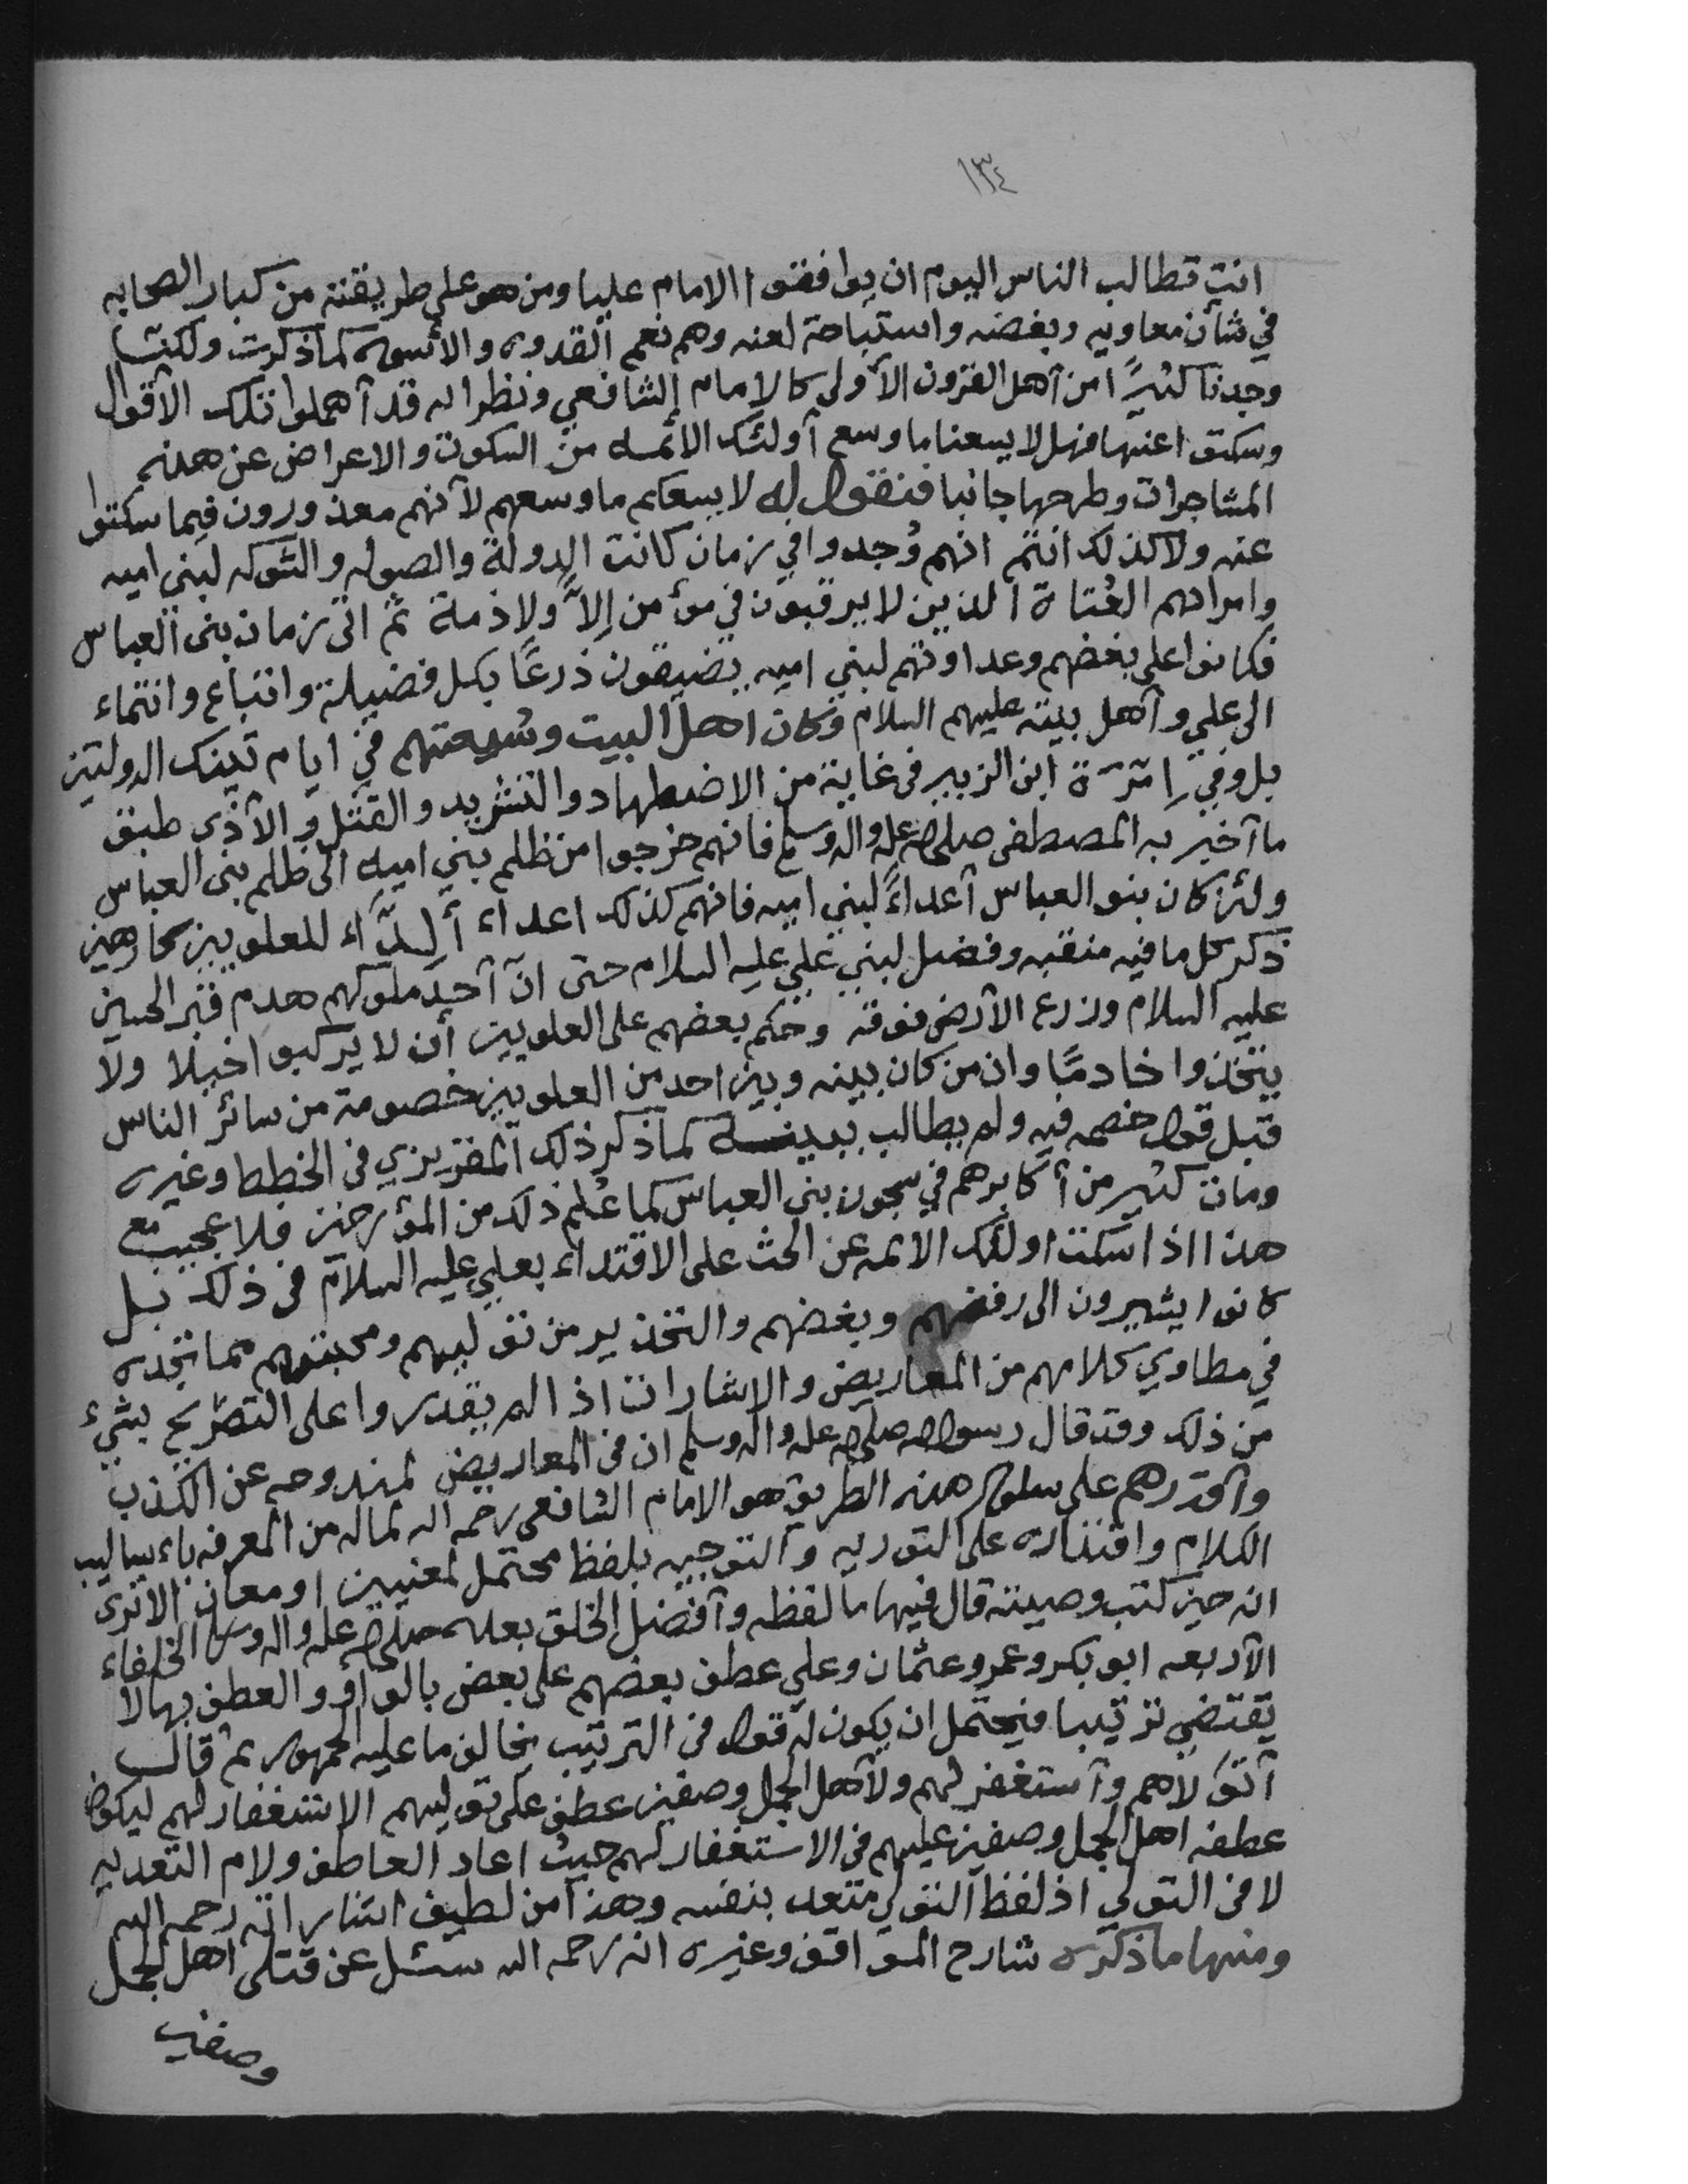 ١٣٤
انت تطالب الناس اليوم ان يوافقوا الامام عليا ومن هو على طريقته من كبار الصحابه
في شأن معاويه وبغضه واستباحة لعنه وهم نعم القدوه والأسوه كما ذكرت ولكننا
وجدنا كثيرًا من أهل القرون الأولى كالإمام الشافعي ونظرائه قد أهملوا تلك الأقوال
وسكتوا عنها فهل لا يسعنا ما وسع أولئك الائمه من السكوت والاعراض عن هذه
المشاجرات وطرحها جانبا فنقول له لا يسعكم ما وسعهم لأنهم معذورون فيما سكتوا
عنه ولا كذلك انتم انهم وُجدوا في زمان كانت الدولة والصوله والشوكه لبني اميه
وامرائهم العُتاة الذين لا يرقبون في مؤمن إلاًّ ولا ذمة ثم اتى زمان بني العباس
فكانوا على بغضهم وعداوتهم لبني اميه يضيقون ذرعًا بكل فضيلة واتباع وانتماء
الى علي وأهل بيته عليهم السلام وكان اهل البيت وشيعتهم في ايام تينك الدولتين
بل وفي إمَرَة ابن الزبير في غاية من الاضطهاد والتشريد والقتل والأذى طبق
ما أخبر به المصطفى صلى الله عليه واله وسلم فانهم خرجوا من ظلم بني اميه الى ظلم بني العباس
ولئن كان بنو العباس أعداءً لبني اميه فانهم كذلك اعداء ألدّاء للعلويين كارهين
ذكر كل ما فيه منقبه وفضل لبني علي عليه السلام حتى انّ أحد ملوكهم هدم قبر الحسين
عليه السلام وزرع الأرض فوقه وحكم بعضهم على العلويين أن لا يركبوا خيلا ولا
يتخذوا خادمًا وان من كان بينه وبين احد من العلويين خصومة من سائر الناس
قبل قول خصمه فيه ولم يطالب ببينه كما ذكر ذلك المقريزي في الخطط وغيره
ومات كثير من أكابرهم في سجون بني العباس كما عُلم ذلك من المؤرخين فلا عجيب مع
هذا اذا سكت اولئك الائمه عن الحث على الاقتداء بعلي عليه السلام في ذلك بل
كانوا يشيرون الى رفضهم وبغضهم والتحذير من توليهم ومحبتهم مما تجده
في مطاوي كلامهم من المعاريض والاشارات اذا لم يقدروا على التصريح بشيء
من ذلك وقد قال رسول الله صلى الله عليه واله وسلم ان في المعاريض لمندوحه عن الكذب
وأقدرهم على سلوك هذه الطريق هو الامام الشافعي رحمه الله لما له من المعرفه باساليب
الكلام واقتداره على التوريه والتوجيه بلفظ محتمل لمعنيين او معان الاترى
انه حين كتب وصيته قال فيها ما لفظه وأفضل الخلق بعده صلى الله عليه واله وسلم الخلفاء
الأربعه ابو بكر وعمر وعثمان وعلي عطف بعضهم على بعض بالواو والعطف بها لا
يقتضي ترتيبا فيحتمل ان يكون له قول في الترتيب يخالف ما عليه الجمهور ثم قال
أتولاهم وأستغفر لهم ولأهل الجمل وصفين عطف على توليهم الاستغفار لهم ليكون
عطفه اهل الجمل وصفين عليهم في الاستغفار لهم حيث اعاد العاطف ولام التعديه
لا في التولي اذ لفظ التولي متعد بنفسه وهذا من لطيف اشاراته رحمه الله
ومنها ما ذكره شارح المواقف وغيره انه رحمه الله سئل عن قتلى اهل الجمل
وصفين